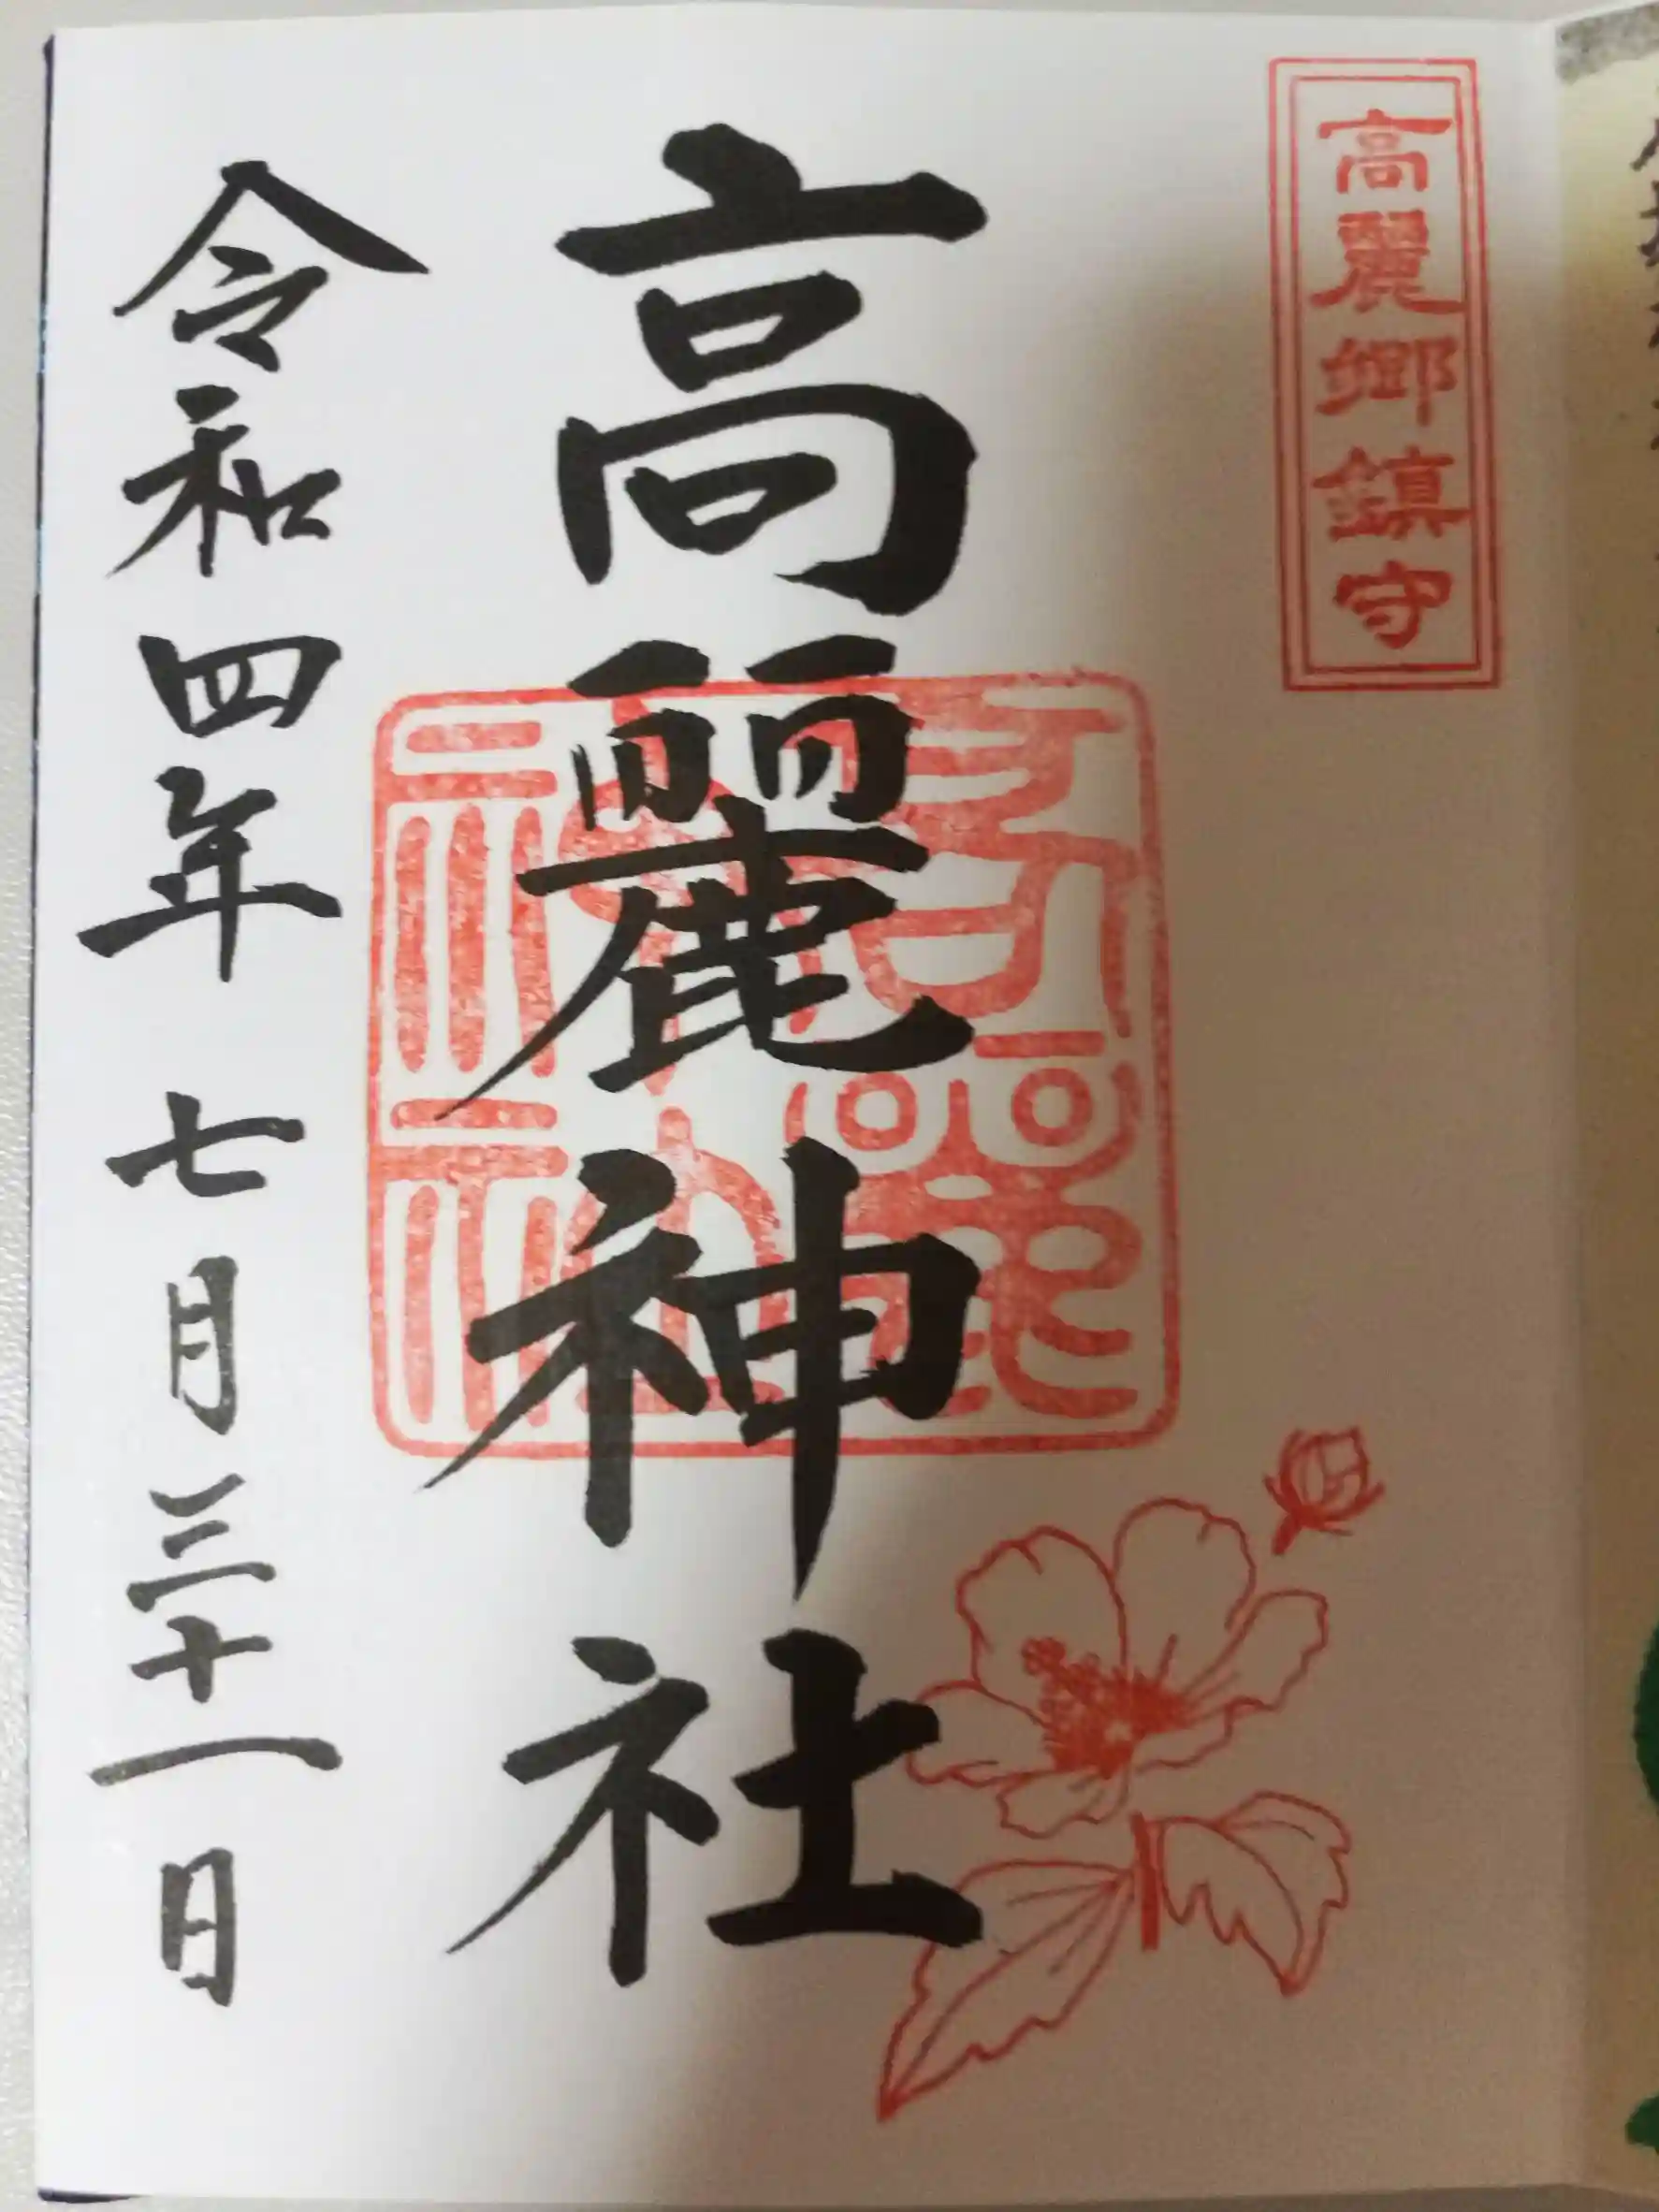 高麗郷鎮守
高麗神社
高麗
神社
令和四年七月三十一日